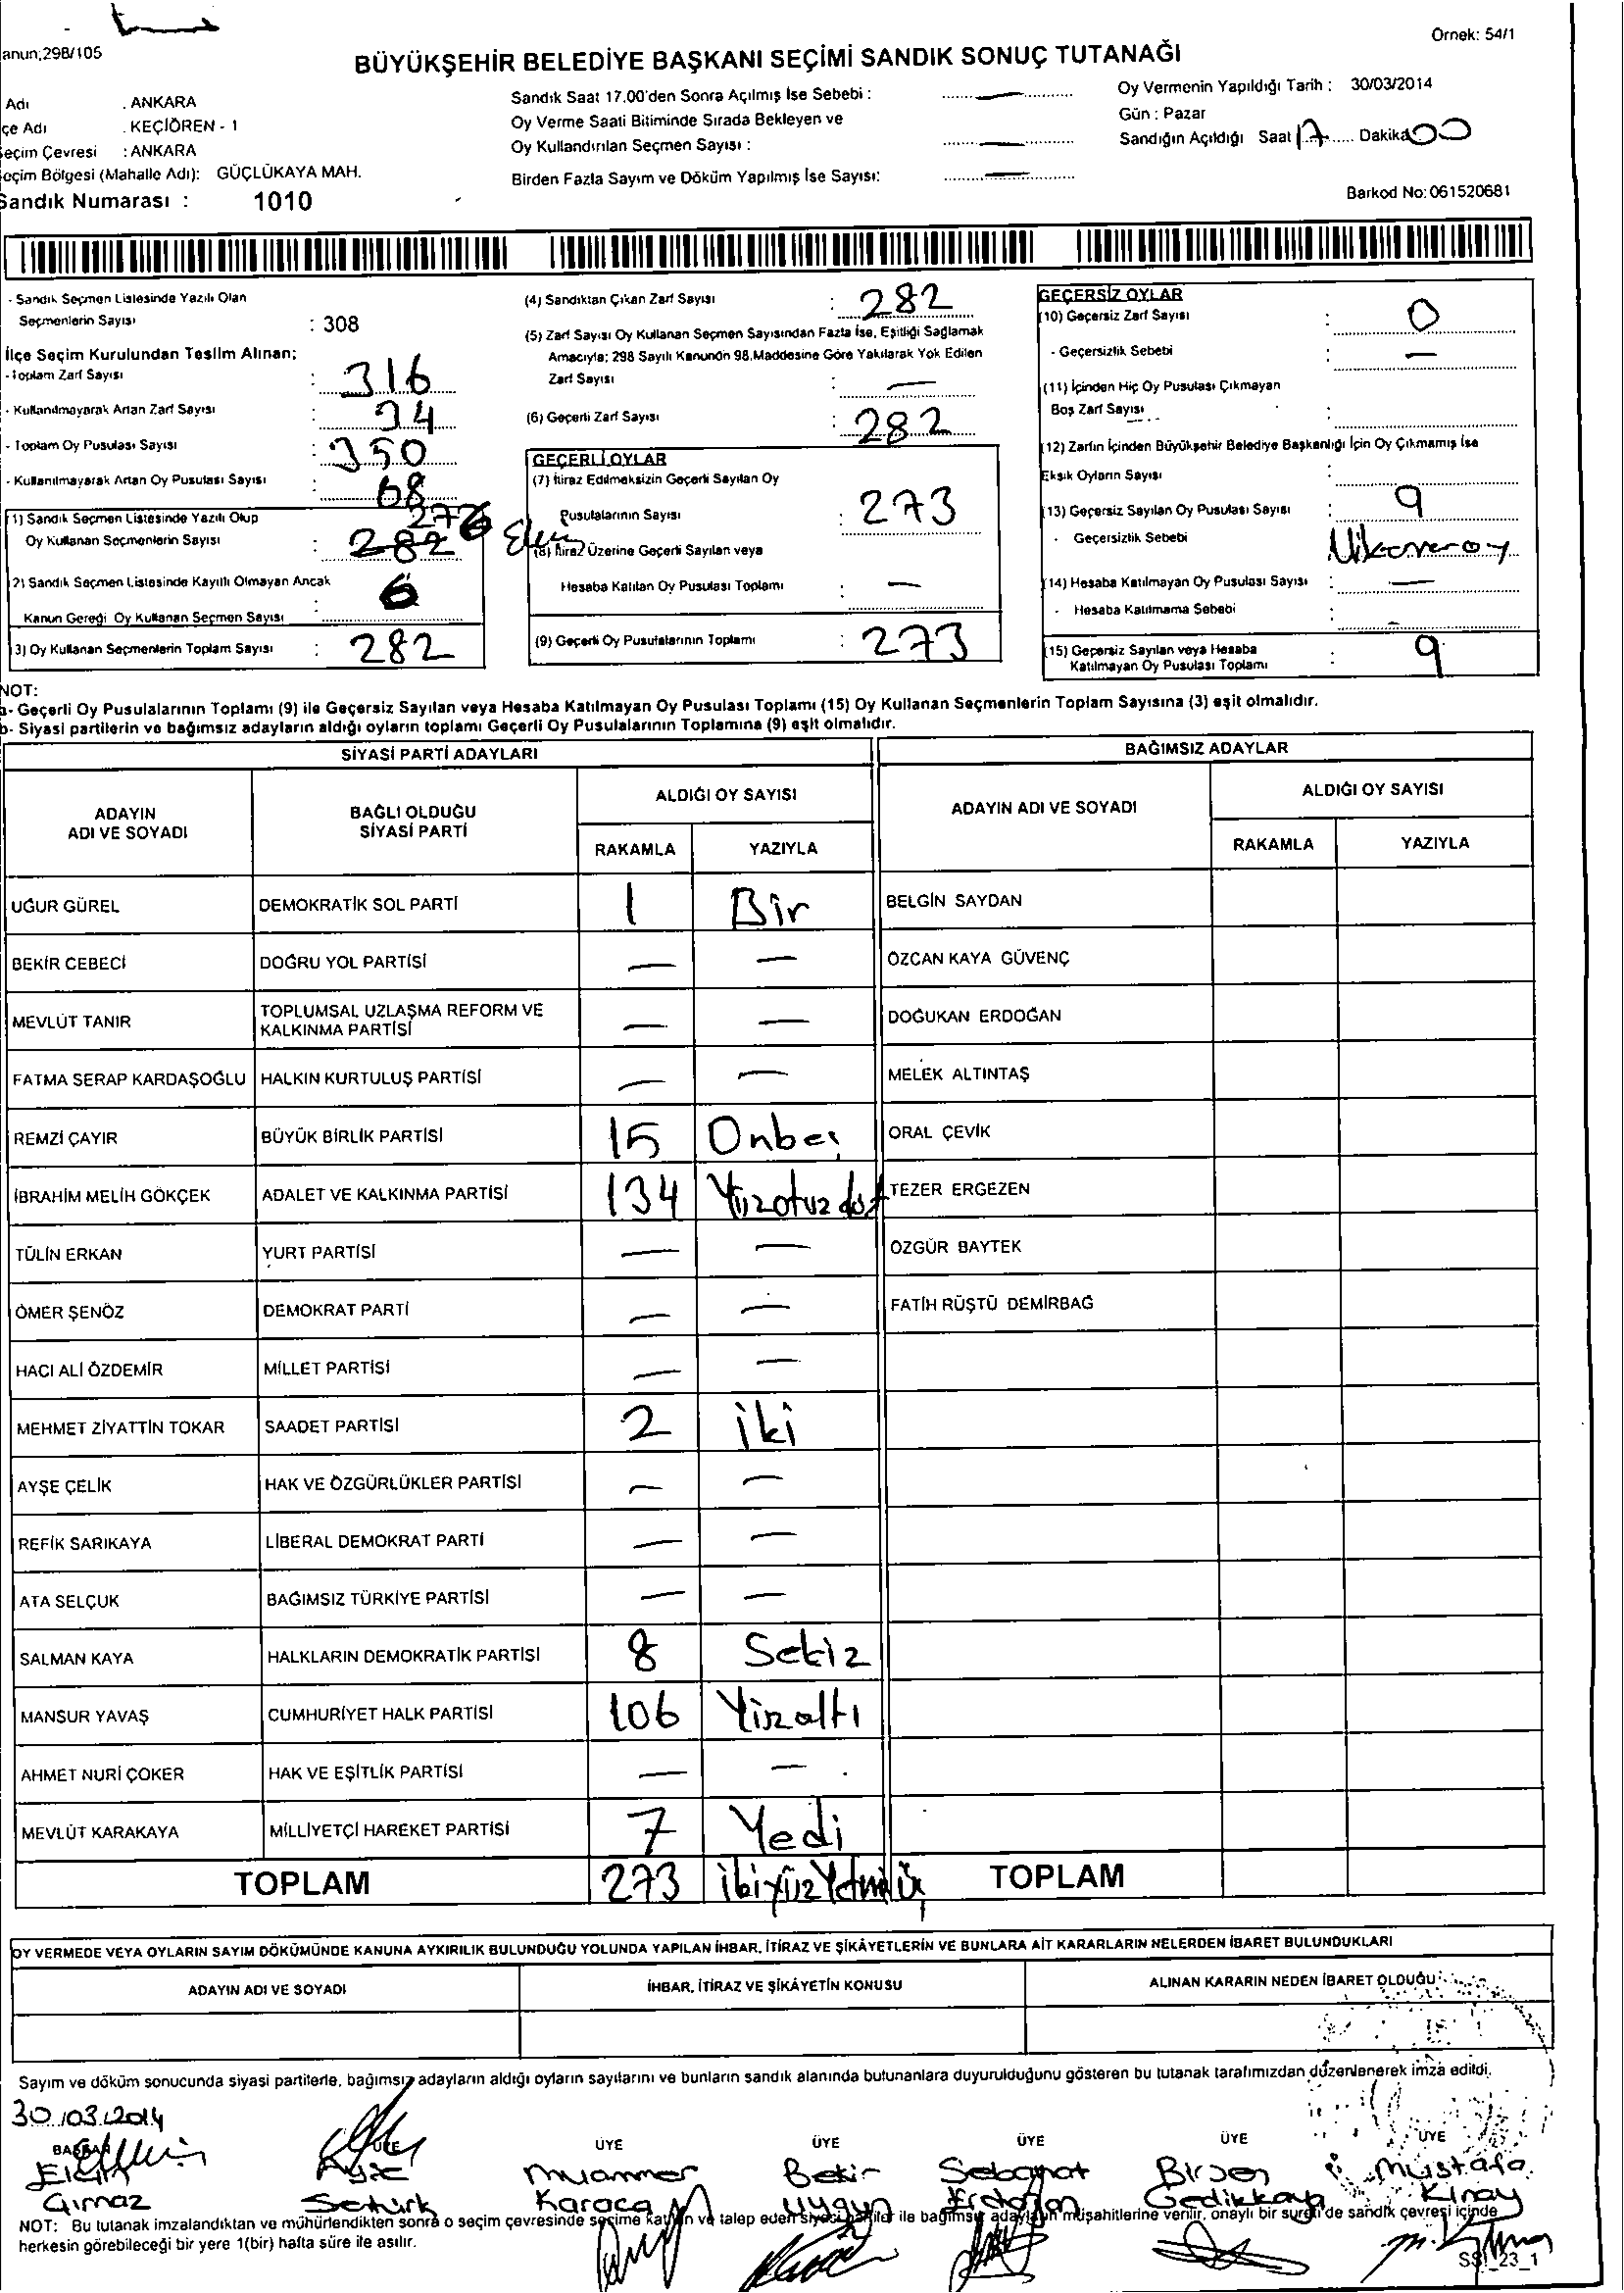 Örnek: 54/1
anun;298/105
BÜYÜKŞEHİR BELEDİYE BAŞKANI SEÇİMİ SANDIK SONUÇ TUTANAĞI
Adı : ANKARA
çe Adı : KEÇİÖREN - 1
eçim Çevresi : ANKARA
eçim Bölgesi (Mahalle Adı): GÜÇLÜKAYA MAH.
Sandık Numarası : 1010
Sandık Saat 17.00'den Sonra Açılmış İse Sebebi : —
Oy Verme Saati Bitiminde Sırada Bekleyen ve
Oy Kullandırılan Seçmen Sayısı : —
Birden Fazla Sayım ve Döküm Yapılmış İse Sayısı: —
Oy Vermenin Yapıldığı Tarih : 30/03/2014
Gün : Pazar
Sandığın Açıldığı Saat 17 Dakika 00
Barkod No: 061520681
- Sandık Seçmen Listesinde Yazılı Olan
Seçmenlerin Sayısı : 308
İlçe Seçim Kurulundan Teslim Alınan;
- Toplam Zarf Sayısı : 316
- Kullanılmayarak Artan Zarf Sayısı : 34
- Toplam Oy Pusulası Sayısı : 350
- Kullanılmayarak Artan Oy Pusulası Sayısı : 68
1) Sandık Seçmen Listesinde Yazılı Olup 276
Oy Kullanan Seçmenlerin Sayısı : 282
2) Sandık Seçmen Listesinde Kayıtlı Olmayan Ancak
Kanun Gereği Oy Kullanan Seçmen Sayısı : 6
3) Oy Kullanan Seçmenlerin Toplam Sayısı : 282
(4) Sandıktan Çıkan Zarf Sayısı : 282
(5) Zarf Sayısı Oy Kullanan Seçmen Sayısından Fazla İse, Eşitliği Sağlamak
Amacıyla; 298 Sayılı Kanunun 98.Maddesine Göre Yakılarak Yok Edilen
Zarf Sayısı : —
(6) Geçerli Zarf Sayısı : 282
GEÇERLİ OYLAR
(7) İtiraz Edilmeksizin Geçerli Sayılan Oy
Pusulalarının Sayısı : 273
(8) İtiraz Üzerine Geçerli Sayılan veya
Hesaba Katılan Oy Pusulası Toplamı : —
(9) Geçerli Oy Pusulalarının Toplamı : 273
GEÇERSİZ OYLAR
(10) Geçersiz Zarf Sayısı : 0
- Geçersizlik Sebebi : —
(11) İçinden Hiç Oy Pusulası Çıkmayan
Boş Zarf Sayısı :
(12) Zarfın İçinden Büyükşehir Belediye Başkanlığı İçin Oy Çıkmamış İse
Eksik Oyların Sayısı :
(13) Geçersiz Sayılan Oy Pusulası Sayısı : 9
- Geçersizlik Sebebi :
(14) Hesaba Katılmayan Oy Pusulası Sayısı : —
- Hesaba Katılmama Sebebi :
(15) Geçersiz Sayılan veya Hesaba
Katılmayan Oy Pusulası Toplamı : 9
NOT:
a- Geçerli Oy Pusulalarının Toplamı (9) ile Geçersiz Sayılan veya Hesaba Katılmayan Oy Pusulası Toplamı (15) Oy Kullanan Seçmenlerin Toplam Sayısına (3) eşit olmalıdır.
b- Siyasi partilerin ve bağımsız adayların aldığı oyların toplamı Geçerli Oy Pusulalarının Toplamına (9) eşit olmalıdır.
SİYASİ PARTİ ADAYLARI
ADAYIN ADI VE SOYADI BAĞLI OLDUĞU SİYASİ PARTİ ALDIĞI OY SAYISI
RAKAMLA YAZIYLA
UĞUR GÜREL DEMOKRATİK SOL PARTİ 1 Bir
BEKİR CEBECİ DOĞRU YOL PARTİSİ — —
MEVLÜT TANIR TOPLUMSAL UZLAŞMA REFORM VE KALKINMA PARTİSİ — —
FATMA SERAP KARDAŞOĞLU HALKIN KURTULUŞ PARTİSİ — —
REMZİ ÇAYIR BÜYÜK BİRLİK PARTİSİ 15 Onbeş
İBRAHİM MELİH GÖKÇEK ADALET VE KALKINMA PARTİSİ 134 Yüzotuzdört
TÜLİN ERKAN YURT PARTİSİ — —
ÖMER ŞENÖZ DEMOKRAT PARTİ — —
HACI ALİ ÖZDEMİR MİLLET PARTİSİ — —
MEHMET ZİYATTİN TOKAR SAADET PARTİSİ 2 iki
AYŞE ÇELİK HAK VE ÖZGÜRLÜKLER PARTİSİ — —
REFİK SARIKAYA LİBERAL DEMOKRAT PARTİ — —
ATA SELÇUK BAĞIMSIZ TÜRKİYE PARTİSİ — —
SALMAN KAYA HALKLARIN DEMOKRATİK PARTİSİ 8 Sekiz
MANSUR YAVAŞ CUMHURİYET HALK PARTİSİ 106 Yüzaltı
AHMET NURİ ÇOKER HAK VE EŞİTLİK PARTİSİ — —
MEVLÜT KARAKAYA MİLLİYETÇİ HAREKET PARTİSİ 7 Yedi
TOPLAM 273 ikiyüzYetmişüç
BAĞIMSIZ ADAYLAR
ADAYIN ADI VE SOYADI ALDIĞI OY SAYISI
RAKAMLA YAZIYLA
BELGİN SAYDAN
ÖZCAN KAYA GÜVENÇ
DOĞUKAN ERDOĞAN
MELEK ALTINTAŞ
ORAL ÇEVİK
TEZER ERGEZEN
ÖZGÜR BAYTEK
FATİH RÜŞTÜ DEMİRBAĞ
TOPLAM
OY VERMEDE VEYA OYLARIN SAYIM DÖKÜMÜNDE KANUNA AYKIRILIK BULUNDUĞU YOLUNDA YAPILAN İHBAR, İTİRAZ VE ŞİKÂYETLERİN VE BUNLARA AİT KARARLARIN NELERDEN İBARET BULUNDUKLARI
ADAYIN ADI VE SOYADI İHBAR, İTİRAZ VE ŞİKÂYETİN KONUSU ALINAN KARARIN NEDEN İBARET OLDUĞU
Sayım ve döküm sonucunda siyasi partilerle, bağımsız adayların aldığı oyların sayılarını ve bunların sandık alanında bulunanlara duyurulduğunu gösteren bu tutanak tarafımızdan düzenlenerek imza edildi.
30/03/2014
BAŞKAN ÜYE ÜYE ÜYE ÜYE ÜYE ÜYE
Elçin Ayşe Muammer Bekir Sebahat Birsen Mustafa
Gırnaz Setürk Karaca Uygun Erdoğan Gedikkaya Kınay
NOT: Bu tutanak imzalandıktan ve mühürlendikten sonra o seçim çevresinde seçime katılan ve talep eden siyasi partiler ile bağımsız adayların müşahitlerine verilir, onaylı bir sureti de sandık çevresi içinde
herkesin görebileceği bir yere 1(bir) hafta süre ile asılır.
SSI_23_1